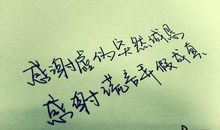 感谢虚伪突然成恩
感谢谎言弄假成真